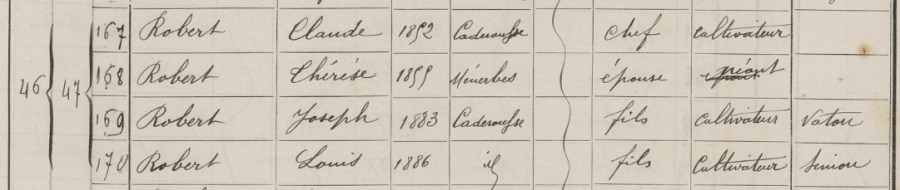 167 Robert Claude 1852 Caderousse chef cultivateur
46 47 168 Robert Thérèse 1859 Ménerbes épouse néant
169 Robert Joseph 1883 Caderousse fils cultivateur Vaton
170 Robert Louis 1886 id fils cultivateur Siniou